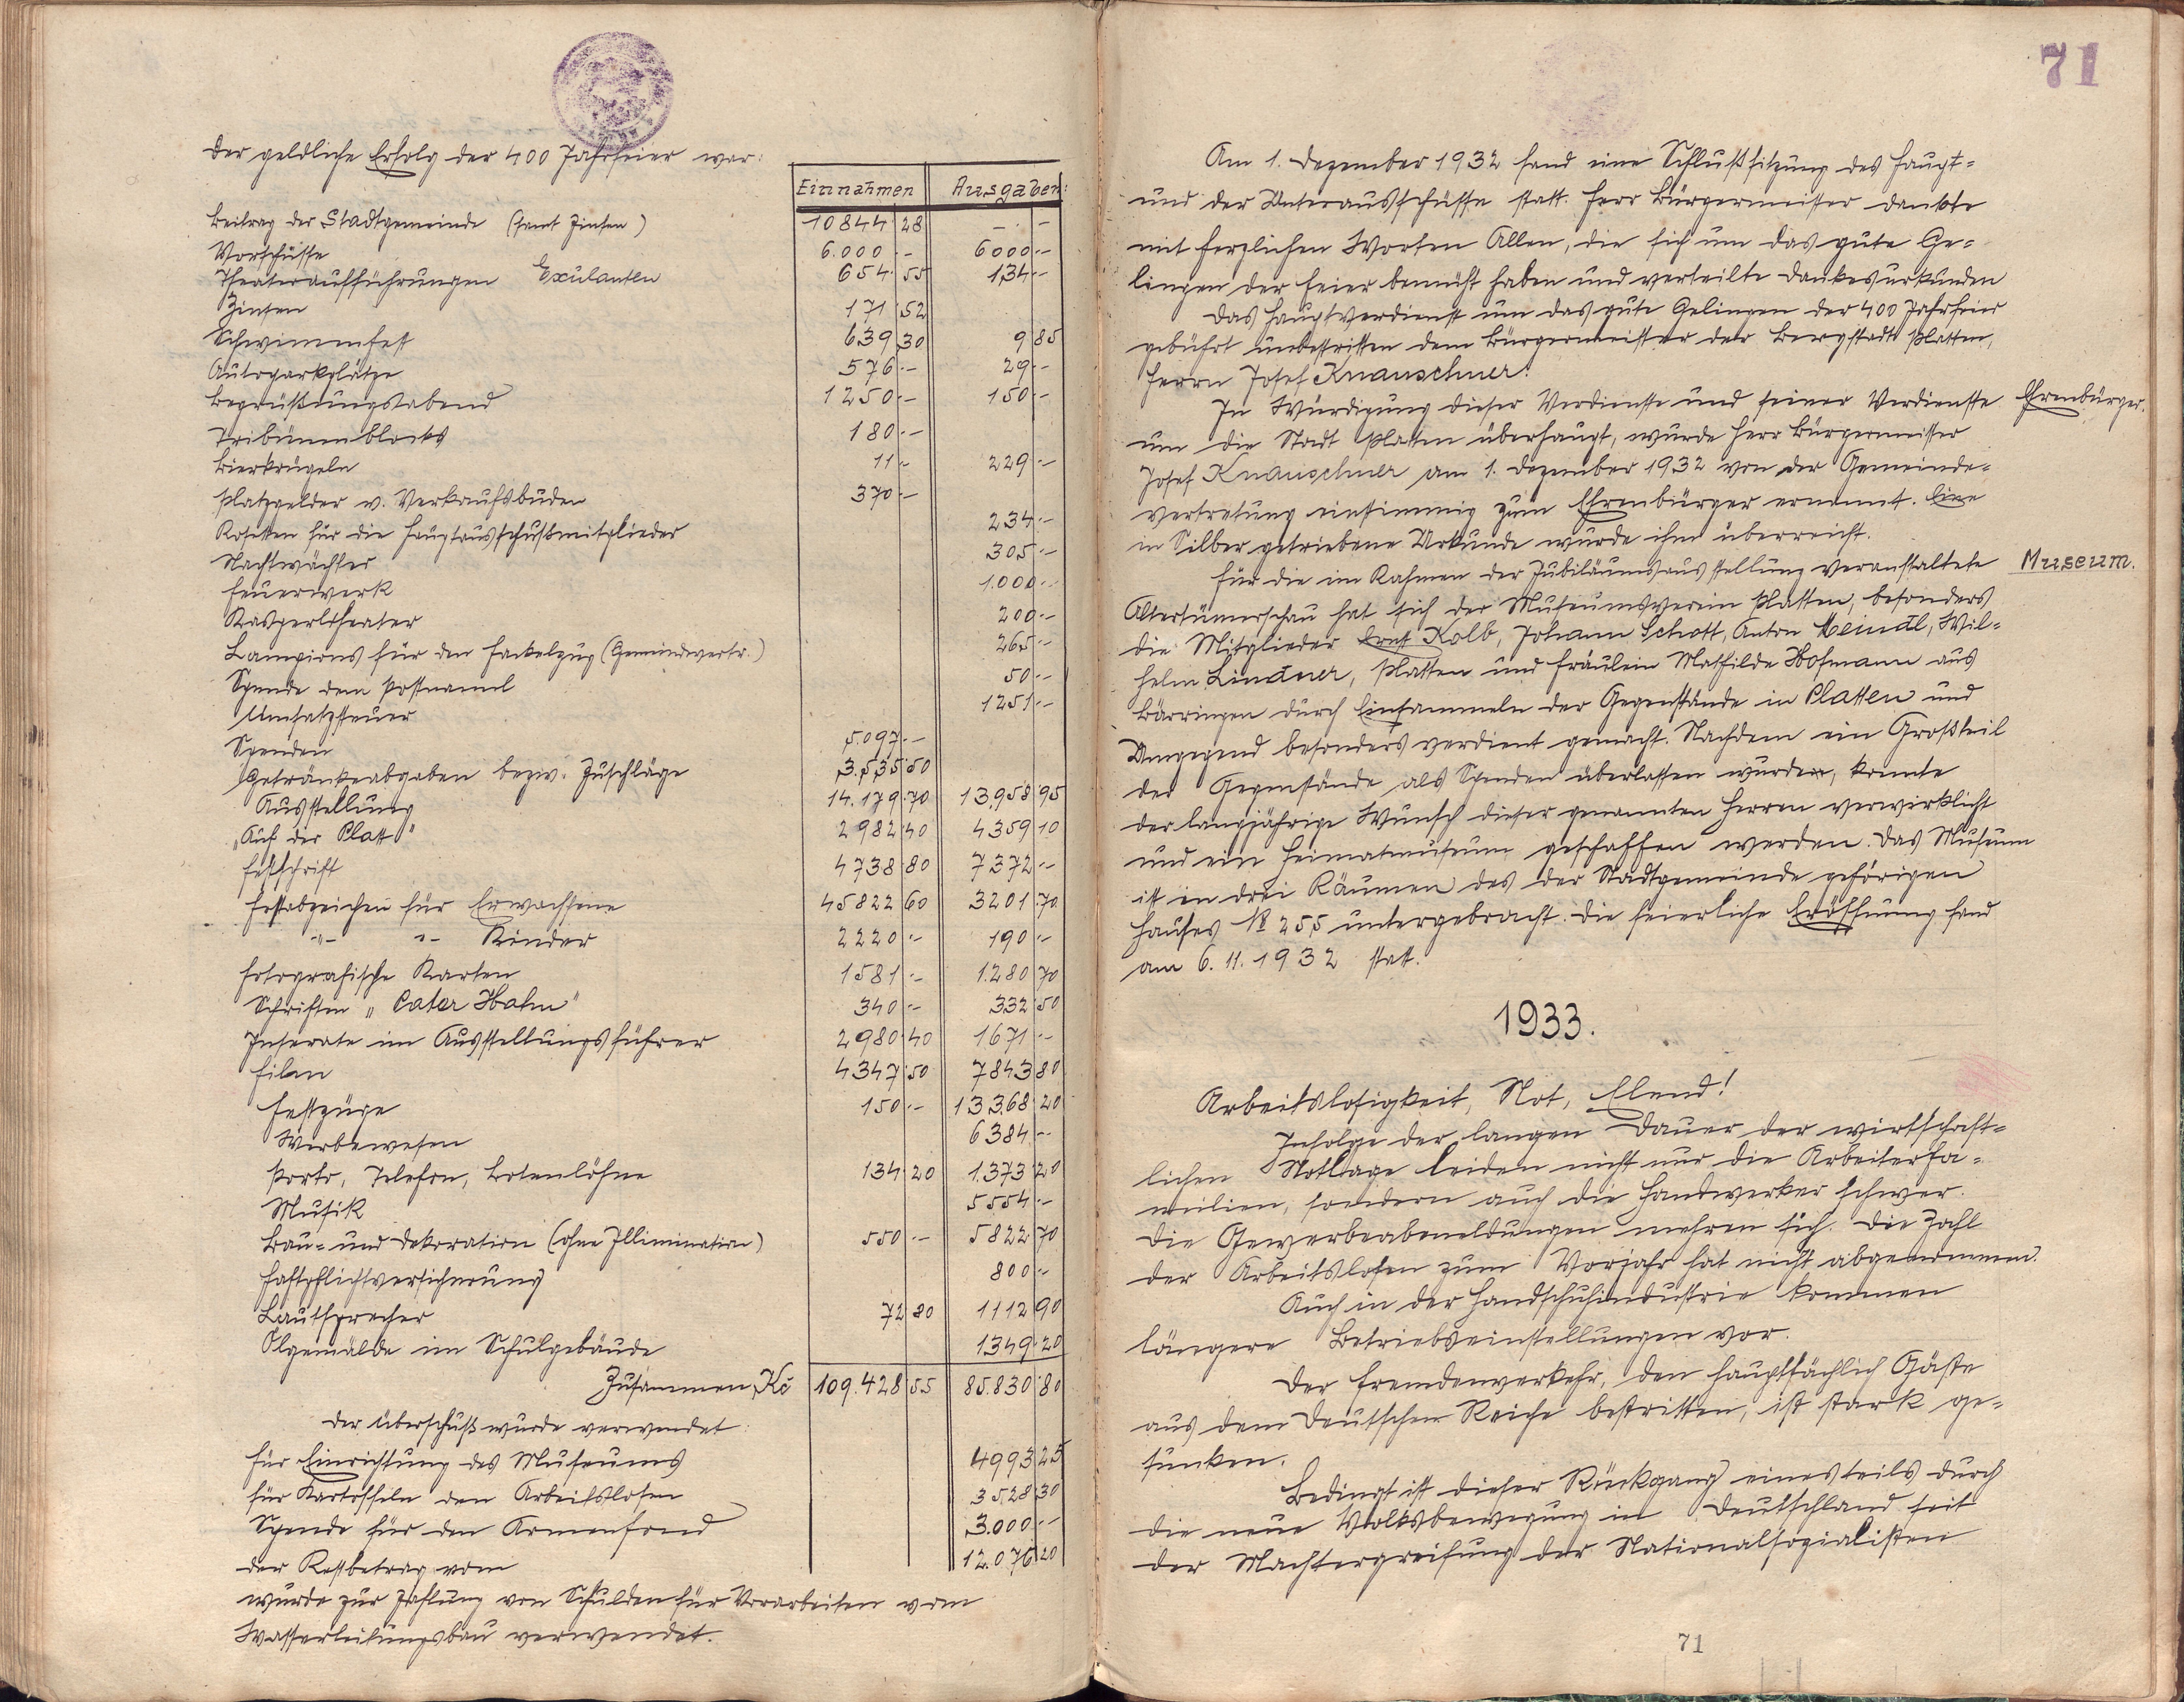 der geldliche Erfolg der 400 Jahrfeier war:
Einnahmen Ausgaben:
Beitrag der Stadtgemeinde (samt Zinsen) 10844 28 – –
Vorschüsse 6.000 – 6000 –
Theateraufführungen Exulanten 654 55 134 –
Zinsen 171 52
Schwimmfest 639 30 9 85
Autoparkplätze 576 – 29 –
Begrüßungsabend 1250 – 150 –
Tribünenblocks 180 –
Bierkrügeln 11 – 229 –
Platzgelder v. Verkaufsbuden 370 –
Rosetten für die Hauptausschußmitglieder 234 –
Nachtwächter 305 –
Feuerwerk 1.000 –
Kasperltheater 200 –
Lampions für den Fackelzug (Gemeindevertr.) 265 –
Spende dem Postnamml 50 –
Umsatzsteuer 1251 –
Spenden 5.097 –
Getränkeabgaben bezw. Zuschläge 3.535 50
Ausstellung 14.179 70 13.958 95
„Auf der Platt" 2982 40 4359 10
Festschrift 4738 80 7372 –
Festabzeichen für Erwachsene 45822 60 3201 70
-"- -"- Kinder 2220 – 190 –
Fotografische Karten 1581 – 1.280 70
Schriften „Pater Hahn" 340 – 332 50
Inserate im Ausstellungsführer 2980 40 1671 –
Filan 4347 50 7843 80
Festzüge 150 – 13368 20
Werbewesen 6384 –
Porto, Telefon, Botenlöhne 134 20 1.373 20
Musik 5554 –
Bau- und Dekoration (ohne Illimination) 550 – 5822 70
Haftpflichtversicherung 800 –
Lautsprecher 72 80 1112 90
Ölgemälde im Schulgebäude 1349 20
Zusammen Kč 109.428 55 85.830 80
der Überschuß wurde verwendet:
für Einrichtung des Museums 4993 25
für Kartoffeln den Arbeitslosen 3528 30
Spende für den Armenfond 3.000 –
der Restbetrag vom 12.076 20
wurde zur Zahlung von Schulden für Vorarbeiten vom
Wasserleitungsbau verwendet.
71
Am 1. Dezember 1932 fand eine Schlußsitzung des Haupt-
und der Unterausschüsse statt. Herr Bürgermeister dankte
mit herzlichen Worten Allen, die sich um das gute Ge-
lingen der Feier bemüht haben und verteilte Dankesurkunden
Das Hauptverdienst um das gute Gelingen der 400 Jahrfeier
gebührt unbestritten dem Bürgermeister der Bergstadt Platten,
Herrn Josef Knauschner.
In Würdigung dieser Verdienste und seiner Verdienste
Ehrenbürger.
um die Stadt Platten überhaupt, wurde Herr Bürgermeister
Josef Knauschner am 1. Dezember 1932 von der Gemeinde-
vertretung einstimmig zum Ehrenbürger ernannt. Eine
in Silber getriebene Urkunde wurde ihm überreicht.
Für die im Rahmen der Jubiläumsausstellung veranstaltete
Museum.
Altertümerschau hat sich der Museumsverein Platten, besonders
die Mitglieder Ernst Kolb, Johann Schott, Anton Meindl, Wil-
helm Lindner, Platten und Fräulein Mathilde Hofmann aus
Bärringen durch Einsammeln der Gegenstände in Platten und
Umgegend besonders verdient gemacht. Nachdem ein Großteil
der Gegenstände als Spenden überlassen wurden, konnte
der langjährige Wunsch dieser genannten Herren verwirklicht
und ein Heimatmuseum geschaffen werden. Das Museum
ist in drei Räumen des der Stadtgemeinde gehörigen
Hauses № 255 untergebracht. Die feierliche Eröffnung fand
am 6. 11. 1932 statt.
1933.
Arbeitslosigkeit, Not, Elend!
Infolge der langen Dauer der wirtschaft-
lichen Notlage leiden nicht nur die Arbeiterfa-
milien, sondern auch die Handwerker schwer.
Die Gewerbeabmeldungen mehren sich. Die Zahl
der Arbeitslosen zum Vorjahr hat nicht abgenommen.
Auch in der Handschuhindustrie kommen
längere Betriebseinstellungen vor.
Der Fremdenverkehr, den hauptsächlich Gäste
aus dem Deutschen Reiche bestritten, ist stark ge-
sunken.
Bedingt ist dieser Rückgang einesteils durch
die neue Volksbewegung in Deutschland seit
der Machtergreifung der Nationalsozialisten
71